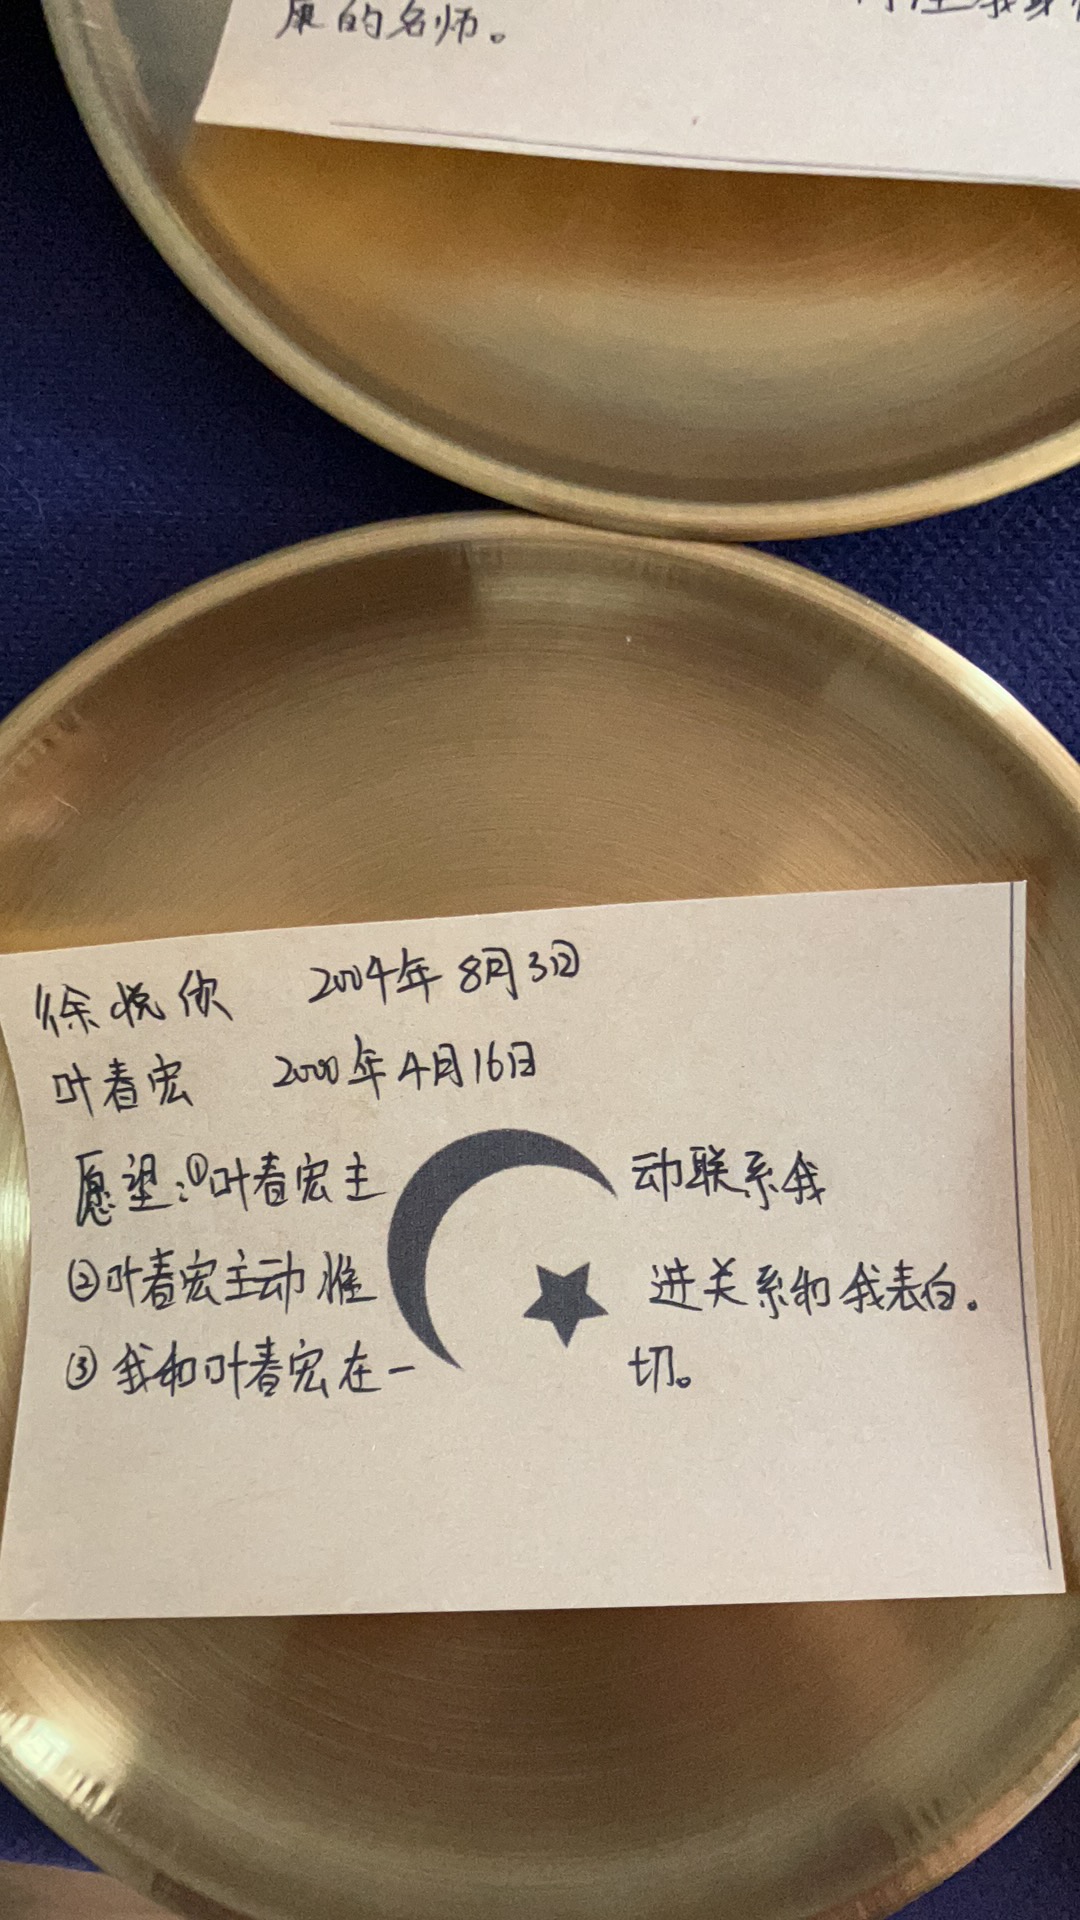 康的名师。
徐悦欣 2004年8月3日
叶春宏 2000年4月16日
愿望:①叶春宏主动联系我
②叶春宏主动推进关系和我表白。
③我和叶春宏在一切。